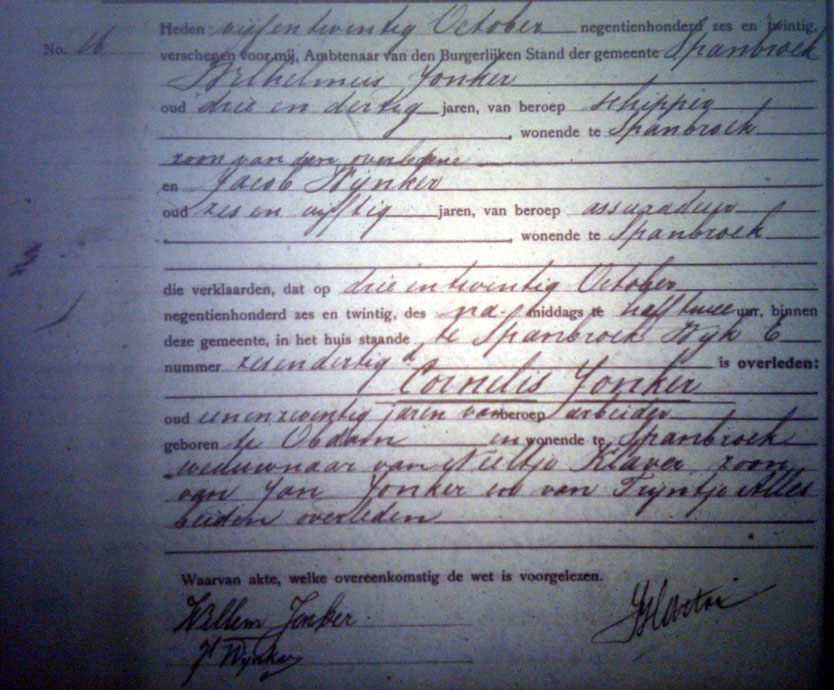 Heden vijf en twintig October negentienhonderd zes en twintig,
No. 16
verschenen voor mij, Ambtenaar van den Burgerlijken Stand der gemeente Spanbroek
Wilhelmus Jonker
oud drie en dertig jaren, van beroep schipper
, wonende te Spanbroek
zoon van den overledene
en Jacob Wijnker
oud zes en vijftig jaren, van beroep assuradeur
, wonende te Spanbroek
die verklaarden, dat op drie en twintig October
negentienhonderd zes en twintig, des na- middags te half twee uur, binnen
deze gemeente, in het huis staande te Spanbroek Wijk E
nummer zes en dertig is overleden:
Cornelis Jonker
oud een en zeventig jaren van beroep arbeider
geboren te Obdam en wonende te Spanbroek
weduwnaar van Neeltje Klaver zoon
van Jan Jonker en van Trijntje Alles
beiden overleden
Waarvan akte, welke overeenkomstig de wet is voorgelezen.
Willem Jonker.
Jb Wijnker